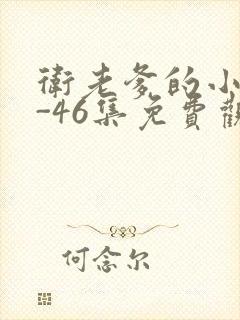 衛老爹的小
-46集免費觀
何念尔